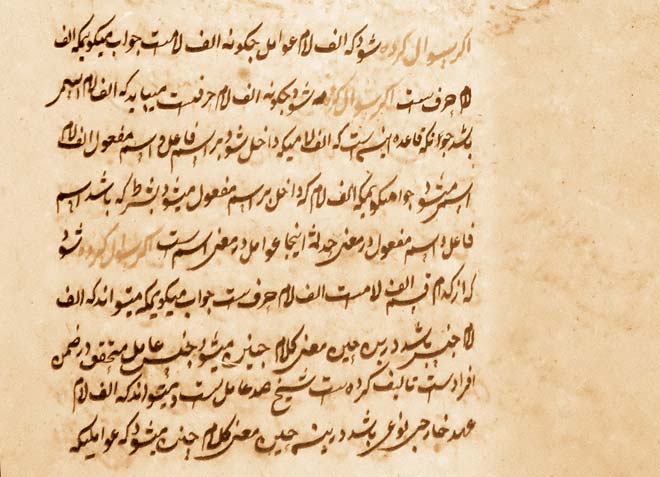 اکر سوال کرده شود که الف لام عوامل چکونه الف لامست جواب میکویم که الف
لام حرف است اکر سوال کرده شود چکونه الف لام حرفست میباید که الف لام اسمی
باشد جرا که قاعده اینست که الف لامیکه داخل شود بر اسم فاعل و اسم مفعول الف لام
اسم میشود جواب میکویم که الف لام که داخل بر اسم مفعول میشود بشرط که باشد اسم
فاعل و اسم مفعول در معنی حدث اینجا عوامل در معنی اسم است اکر سوال کرده شود
که از کدام قسم الف لامست الف لام حرفست جواب میکویم که میتواند که الف
لام جنس باشد درین حین معنی کلام چنین میشود جنس عامل متحقق در ضمن
افرادست تالیف کرده ست شیخ صد عامل ست و میتواند که الف لام
عهد خارجی نوعی باشد درین حین معنی کلام چنین میشود که عواملیکه